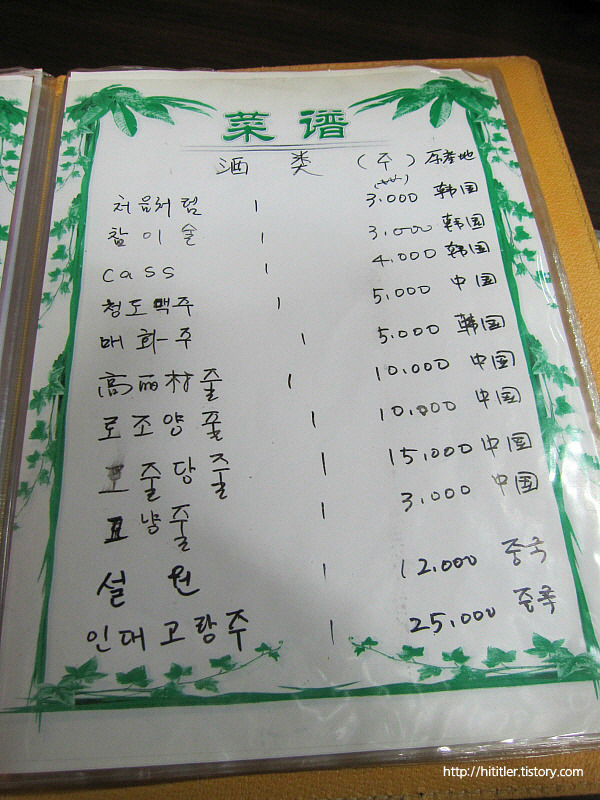 菜 谱
酒 类 (주) 原产地
처음처럼 1 3.000 韩国
참이슬 1 3.000 韩国
cass 1 4.000 韩国
청도맥주 1 5.000 中国
매화주 1 5.000 韩国
高丽村 줄 1 10.000 中国
로조양 줄 1 10.000 中国
포줄당줄 1 15.000 中国
표냥줄 1 3.000 中国
설원 1 12.000 중국
인대고량주 1 25.000 중국
http://hititler.tistory.com